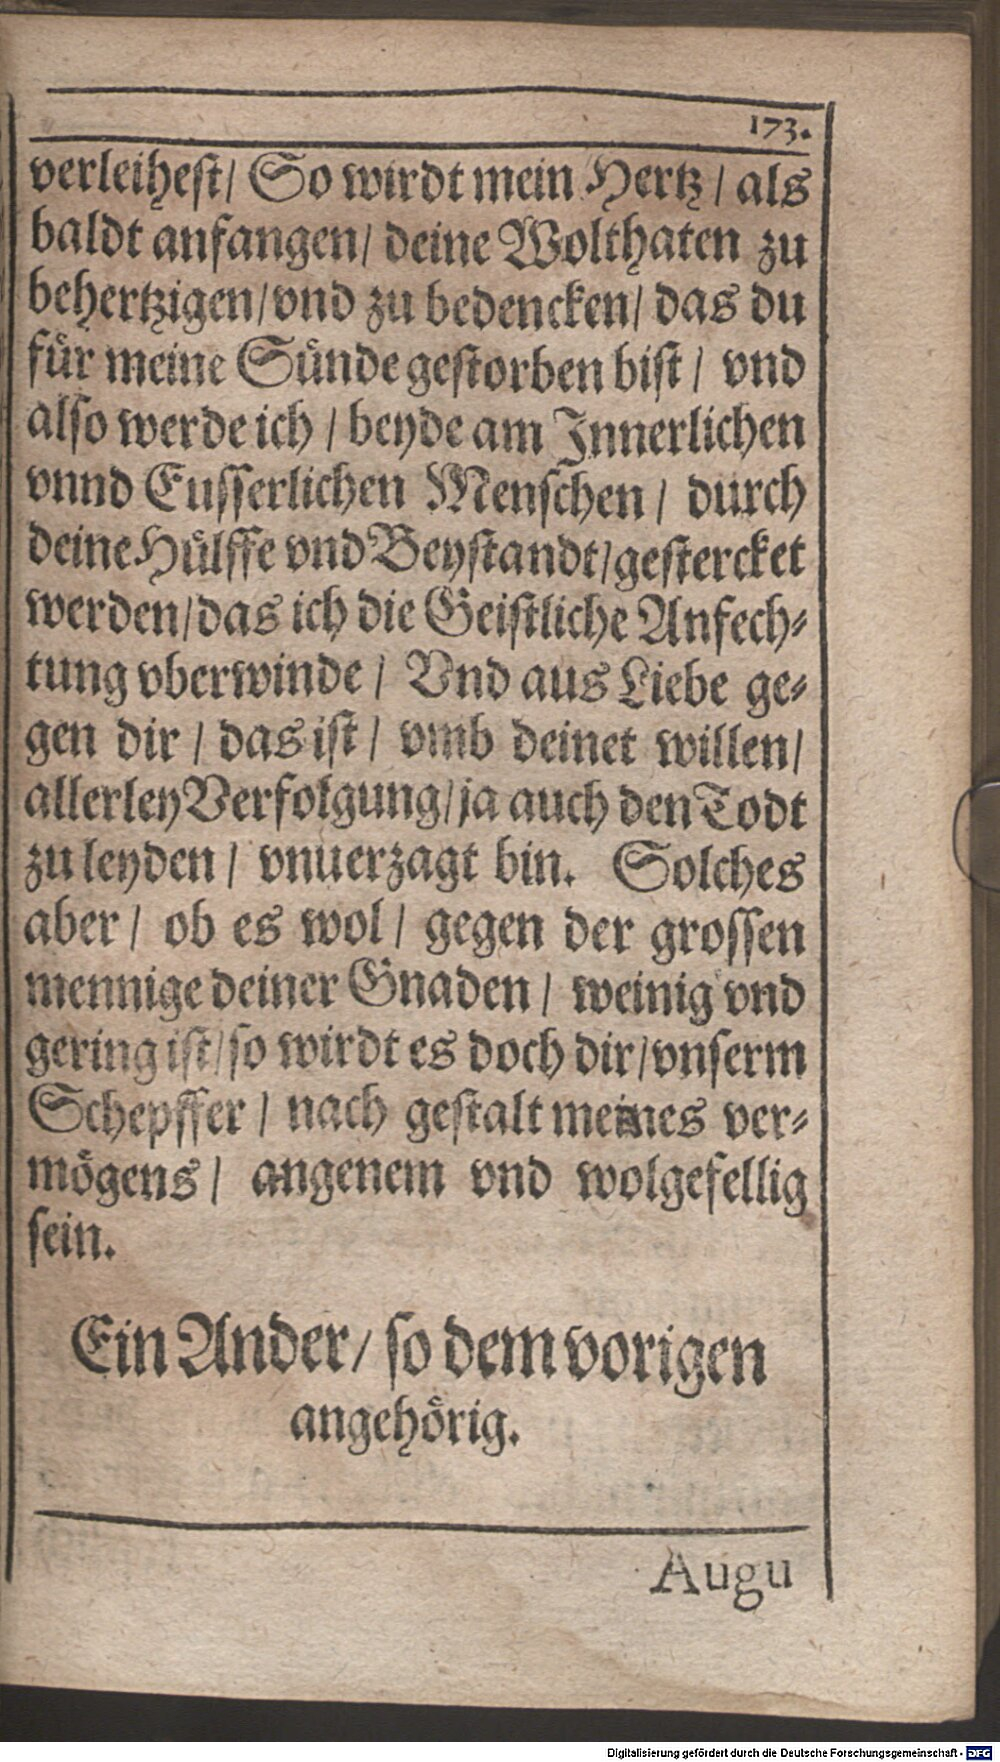 173.
verleihest/ So wirdt mein Hertz / als
baldt anfangen/ deine Wolthaten zu
behertzigen/ vnd zu bedencken/ das du
für meine Sünde gestorben bist / vnd
also werde ich / beyde am Innerlichen
vnnd Eusserlichen Menschen / durch
deine Hülffe vnd Beystandt/ gestercket
werden/ das ich die Geistliche Anfech-
tung vberwinde / Vnd aus Liebe ge-
gen dir / das ist / vmb deinet willen/
allerley Verfolgung/ ja auch den Todt
zu leyden / vnuerzagt bin. Solches
aber / ob es wol / gegen der grossen
mennige deiner Gnaden / weinig vnd
gering ist/ so wirdt es doch dir/ vnserm
Schepffer / nach gestalt meines ver-
mögens / angenem vnd wolgefellig
sein.
Ein Ander/ so dem vorigen
angehörig.
Augu
Digitalisierung gefördert durch die Deutsche Forschungsgemeinschaft - DFG